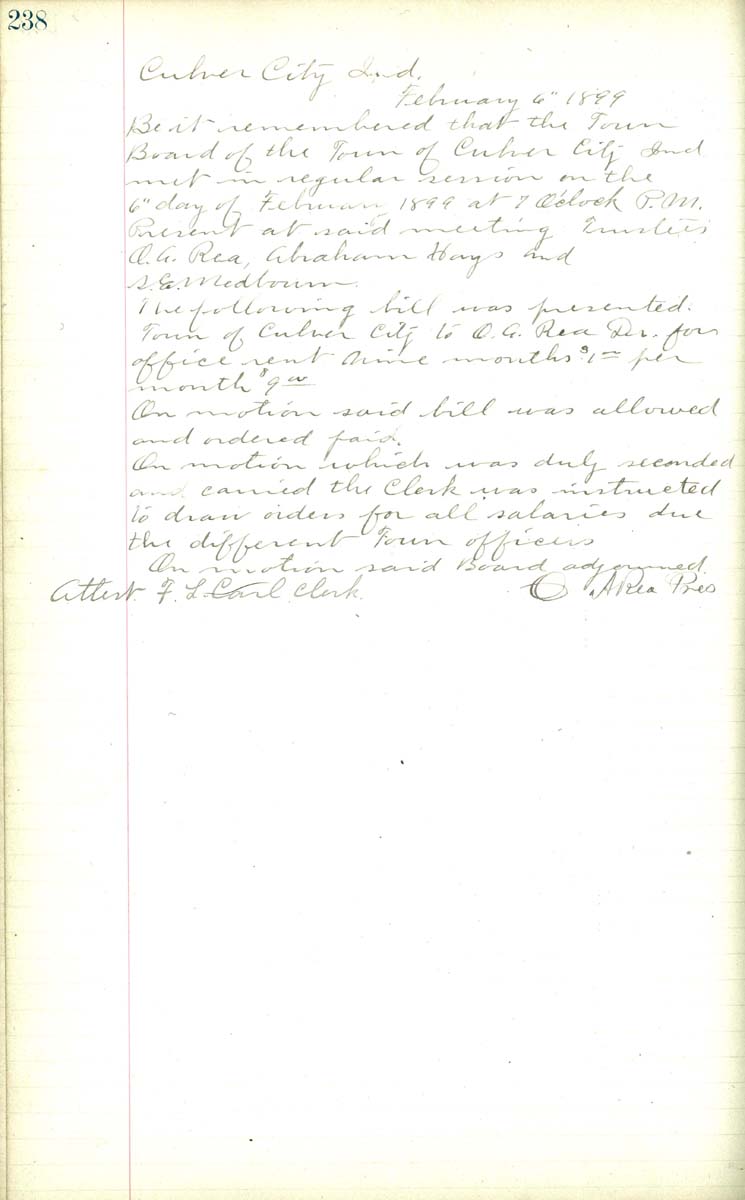 238
Culver City Ind.
February 6" 1899
Be it remembered that the Town
Board of the Town of Culver City Ind
met in regular session on the
6" day of February 1899 at 7 O'clock P.M.
Present at said meeting Trustees
O.A. Rea, Abraham Hays and
S.E. Medbourn.
The following bill was presented.
Town of Culver City to O.A. Rea Dr. for
office rent nine months $1 00 per
month $9 00
On motion said bill was allowed
and ordered paid.
On motion which was duly seconded
and carried the Clerk was instructed
to draw orders for all salaries due
the different Town officers
On motion said Board adjourned.
Attest F. L. Carl Clerk. O. A Rea Pres